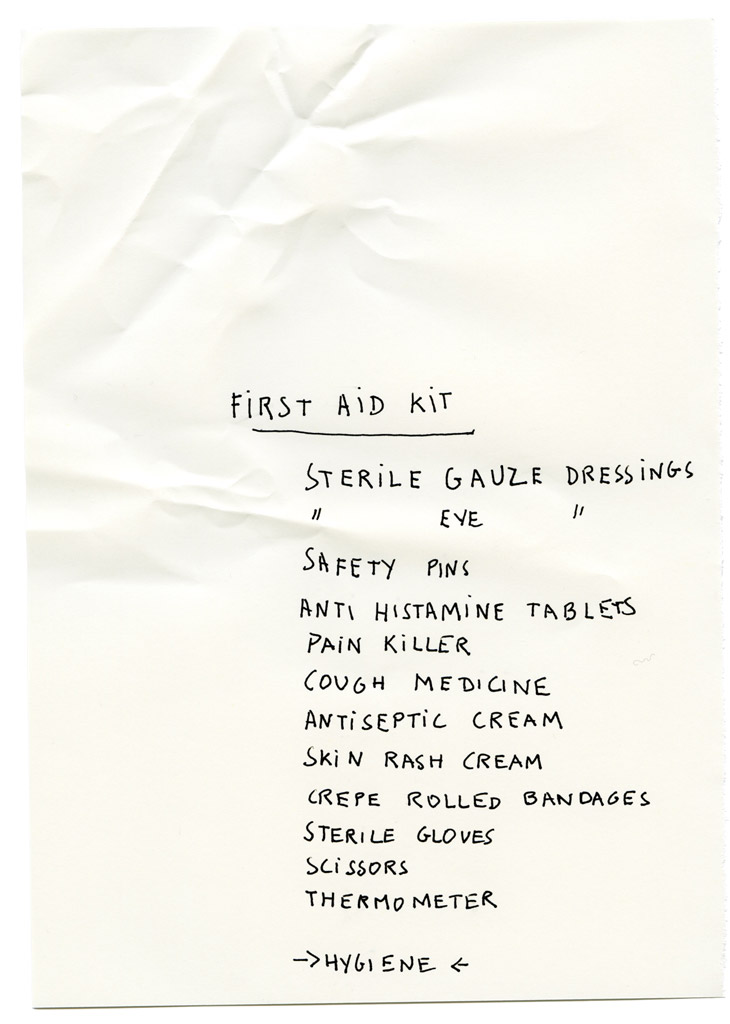 FiRST AiD KiT
STERiLE GAUZE DRESSiNGS
" EYE "
SAFETY PINS
ANTI HISTAMINE TABLETS
PAiN KiLLER
COUGH MEDICINE
ANTiSEPTiC CREAM
SKiN RASH CREAM
CREPE ROLLED BANDAGES
STERILE GLOVES
SCiSSORS
THERMOMETER
→ HYGIENE ←